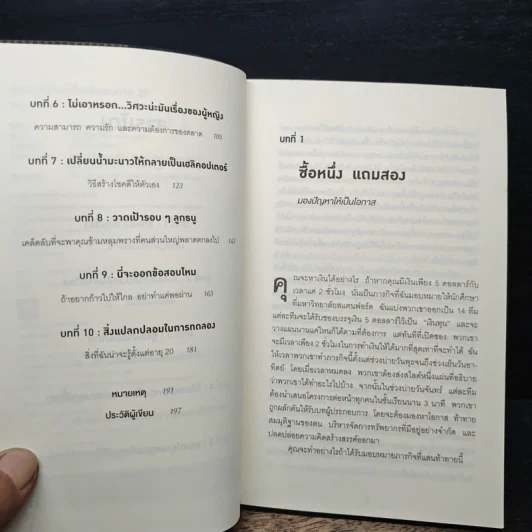 บทที่ 6 : ไม่เอาหรอก...วิศวะน่ะมันเรื่องของผู้หญิง
ความสามารถ ความรัก และความต้องการของตลาด 105
บทที่ 7 : เปลี่ยนน้ำมะนาวให้กลายเป็นเฮลิคอปเตอร์
วิธีสร้างโชคดีให้ตัวเอง 123
บทที่ 8 : วาดเป้ารอบ ๆ ลูกธนู
เคล็ดลับที่จะพาคุณข้ามหลุมพรางที่คนส่วนใหญ่พลาดตกลงไป 143
บทที่ 9 : นี่จะออกข้อสอบไหม
ถ้าอยากก้าวไปให้ไกล อย่าทำแค่พอผ่าน 163
บทที่ 10 : สิ่งแปลกปลอมในการทดลอง
สิ่งที่ฉันน่าจะรู้ตั้งแต่อายุ 20 181
หมายเหตุ 191
ประวัติผู้เขียน 197
บทที่ 1
ซื้อหนึ่ง แถมสอง
มองปัญหาให้เป็นโอกาส
คุณจะหาเงินได้อย่างไร ถ้าหากคุณมีเงินเพียง 5 ดอลลาร์กับ
เวลาแค่ 2 ชั่วโมง นั่นเป็นภารกิจที่ฉันมอบหมายให้นักศึกษา
ที่มหาวิทยาลัยสแตนฟอร์ด ฉันแบ่งพวกเขาออกเป็น 14 ทีม
แต่ละทีมจะได้รับซองบรรจุเงิน 5 ดอลลาร์ไว้เป็น "เงินทุน" และจะ
วางแผนนานแค่ไหนก็ได้ตามที่ต้องการ แต่ทันทีที่เปิดซอง พวกเขา
จะมีเวลาเพียง 2 ชั่วโมงในการทำเงินให้ได้มากที่สุดเท่าที่จะทำได้ ฉัน
ให้เวลาพวกเขาทำภารกิจนี้ตั้งแต่ช่วงบ่ายวันพุธจนถึงช่วงเย็นวันอา-
ทิตย์ โดยเมื่อเวลาหมดลง พวกเขาต้องส่งสไลด์หนึ่งแผ่นที่อธิบาย
ว่าพวกเขาได้ทำอะไรไปบ้าง จากนั้นในช่วงบ่ายวันจันทร์ แต่ละทีม
ต้องนำเสนอโครงการต่อหน้าทุกคนในชั้นเรียนนาน 3 นาที พวกเขา
ถูกผลักดันให้รับบทผู้ประกอบการ โดยจะต้องมองหาโอกาส ท้าทาย
สมมุติฐานของตน บริหารจัดการทรัพยากรที่มีอยู่อย่างจำกัด และ
ปลดปล่อยความคิดสร้างสรรค์ออกมา
คุณจะทำอย่างไรถ้าได้รับมอบหมายภารกิจที่แสนท้าทายนี้